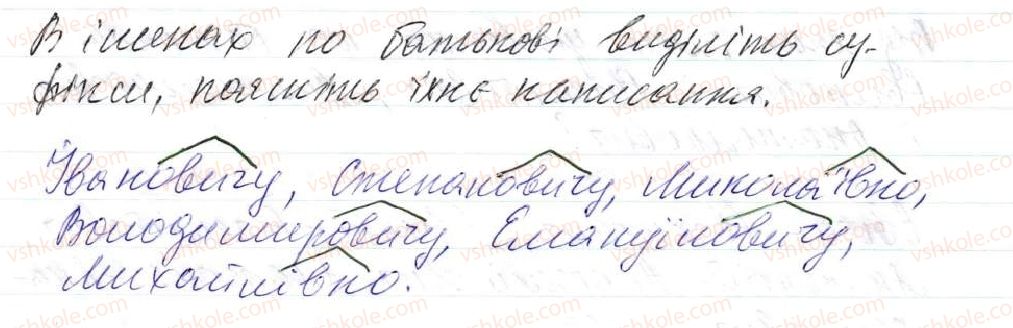 В іменах по батькові виділіть су-
фікси, поясніть їхнє написання.
Івановичу, Степановичу, Миколаївно,
Володимировичу, Емануїловичу,
Михайлівно.